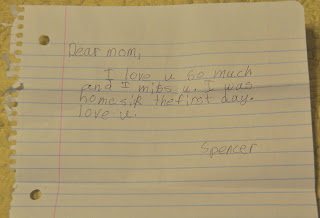 Dear mom,
I love u so much
and I miss u. I was
homesik the first day.
love u.
Spencer